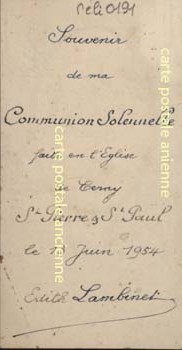 Souvenir
de ma
Communion Solennelle
faite en l'Eglise
de Cerny
St Pierre & St Paul
le Juin 1954
Edith Lambinet
carte postale ancienne
carte postale ancienne